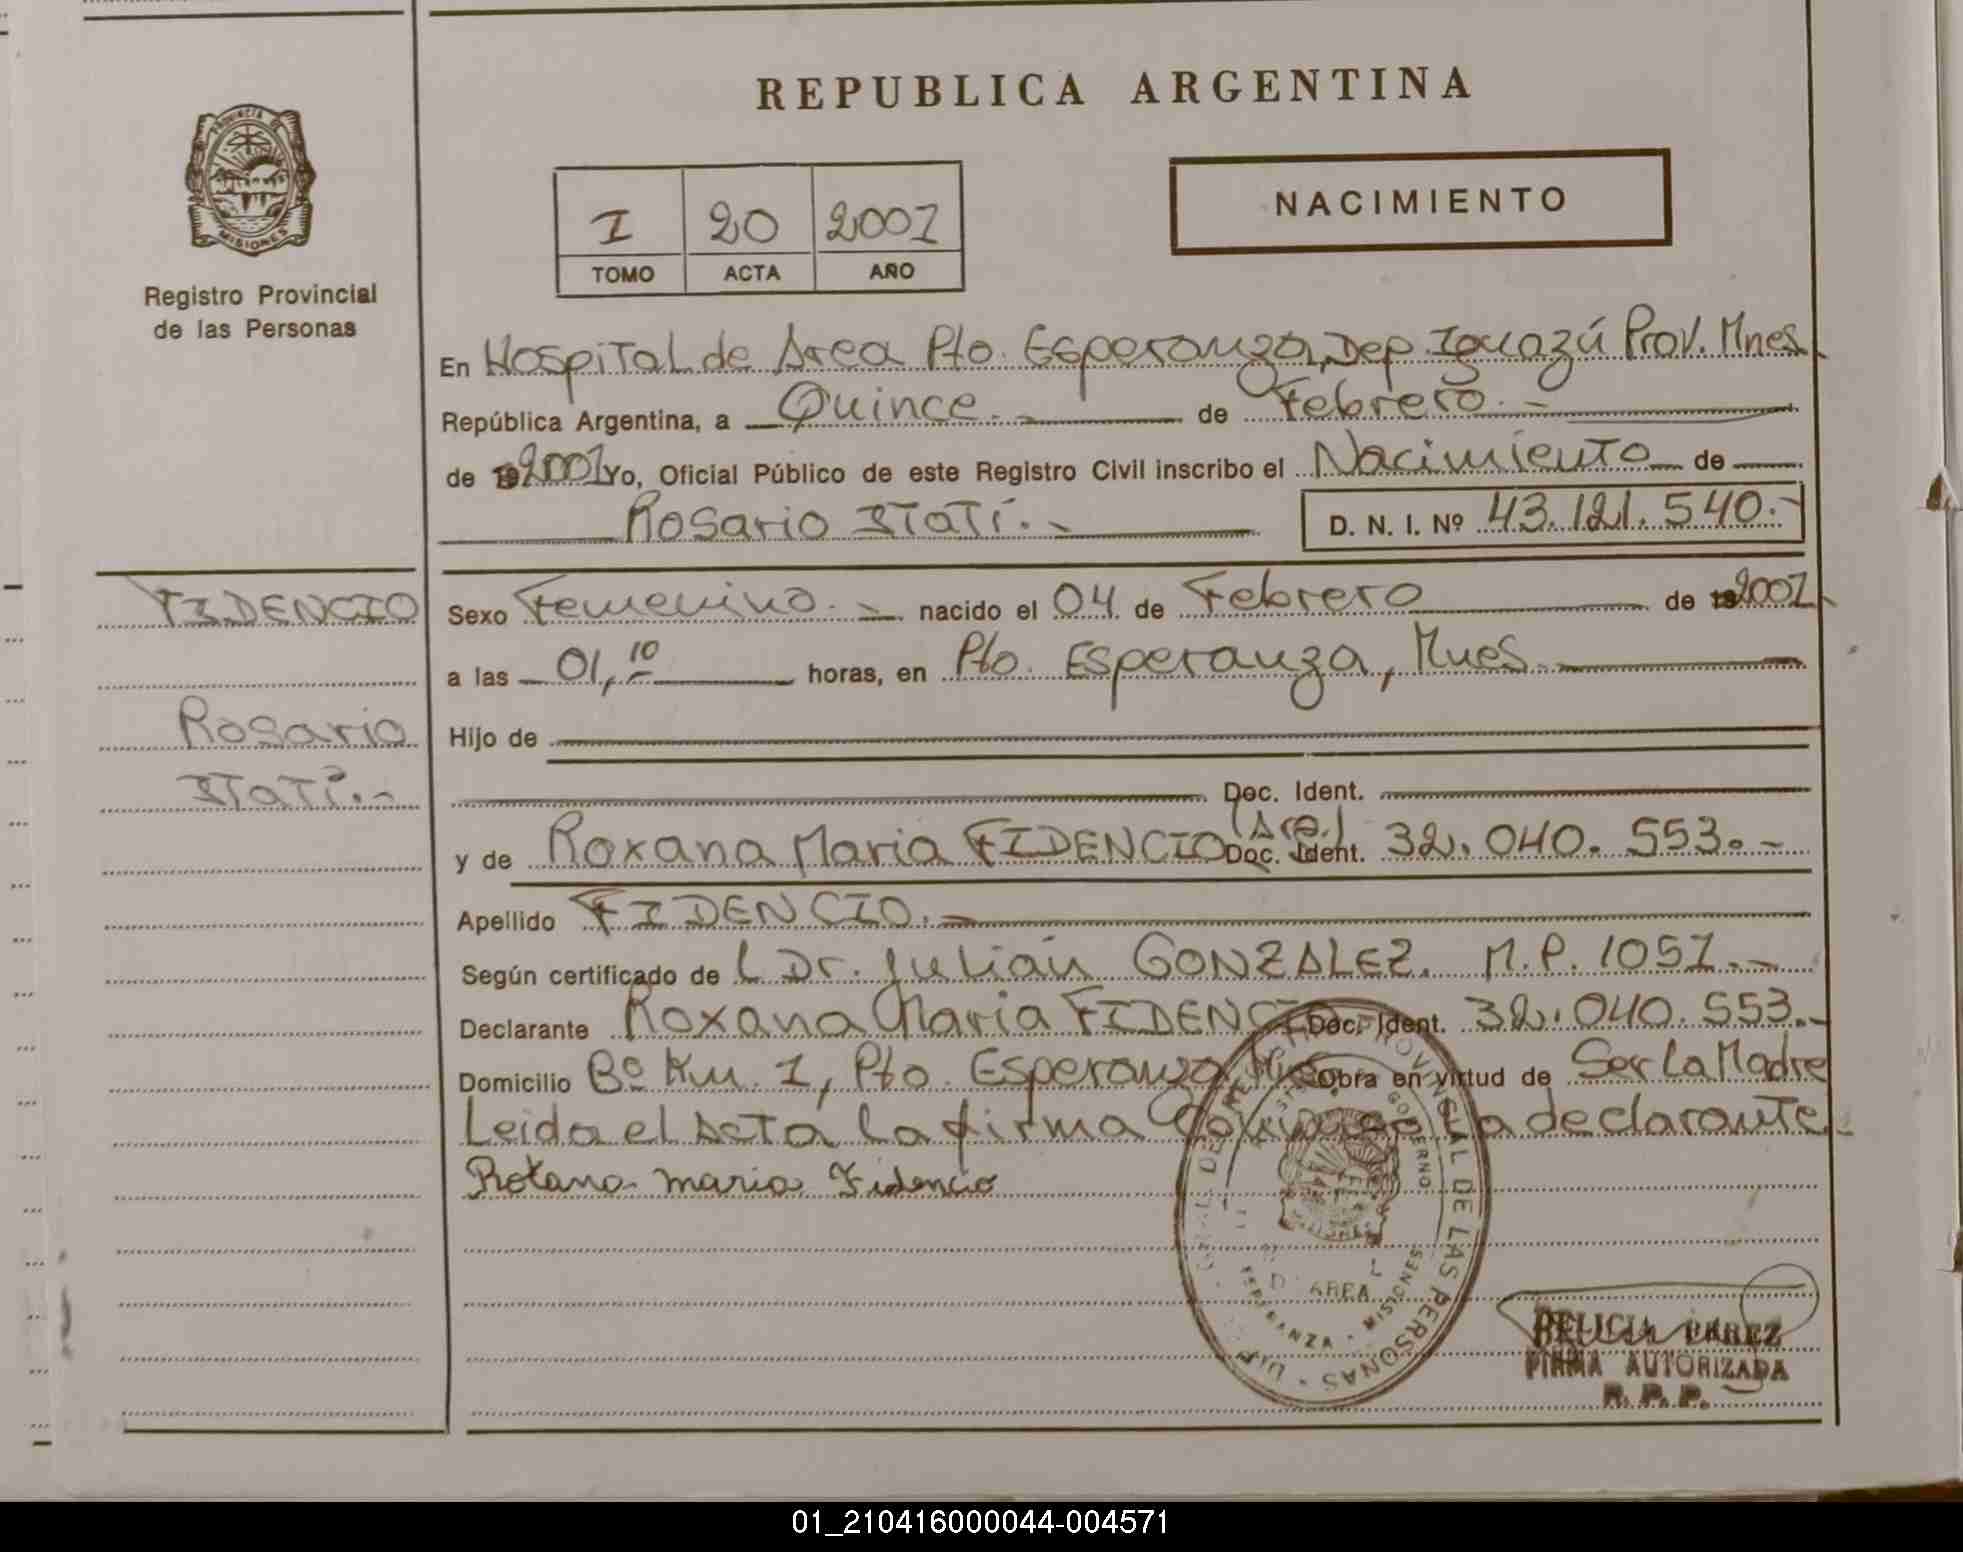 REPUBLICA ARGENTINA
PROVINCIA DE
MISIONES
Registro Provincial
de las Personas
I 20 2001
TOMO ACTA AÑO
NACIMIENTO
En Hospital de Area Pto. Esperanza, Dep. Iguazú Prov. Mnes.
República Argentina, a Quince.- de Febrero.-
de 19 2001 Yo, Oficial Público de este Registro Civil inscribo el Nacimiento de
Rosario Itatí.- D. N. I. Nº 43.121.540.-
FIDENCIO
Rosario
Itatí.-
Sexo Femenino.- nacido el 04 de Febrero de 19 2001.
a las 01,10 horas, en Pto. Esperanza, Mnes.-
Hijo de
Doc. Ident.
y de Roxana Maria FIDENCIO (Arg.) Doc. Ident. 32.040.553.-
Apellido FIDENCIO.-
Según certificado de L Dr. Julián GONZALEZ. M.P. 1051.-
Declarante Roxana Maria FIDENCIO Doc. Ident. 32.040.553.-
Domicilio Bº Km. 1, Pto. Esperanza, Mnes. Obra en virtud de Ser La Madre
Leida el Acta la firma Conmigo La declarante.-
Roxana maria Fidencio
PROVINCIAL DE LAS PERSONAS
GOBIERNO
AREA
ESPERANZA - MISIONES
DELICIA PEREZ
FIRMA AUTORIZADA
R. P. P.
01_210416000044-004571